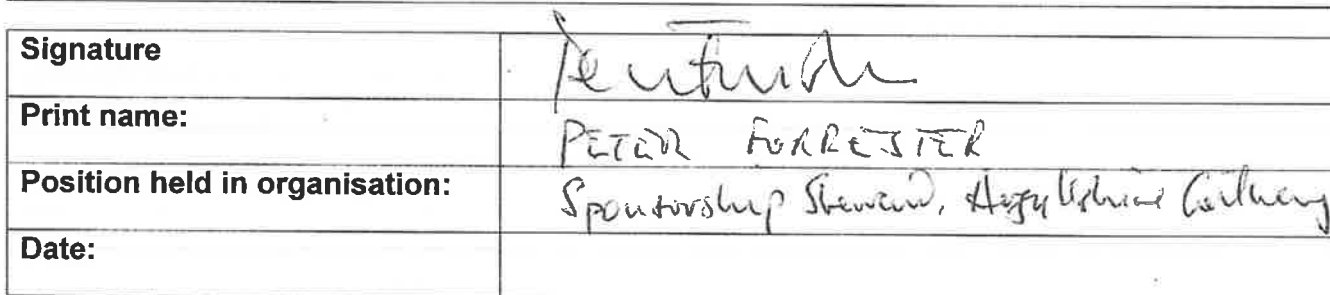 Signature
Print name: PETER FORRESTER
Position held in organisation: Sponsorship Steward, Argyllshire Gathering
Date: